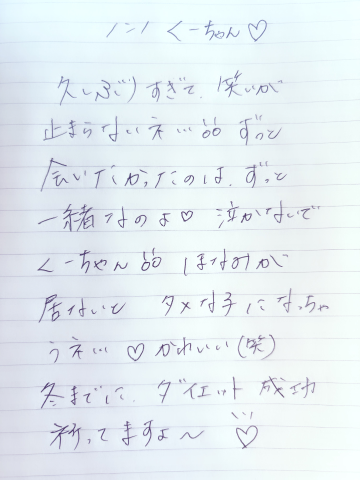 ハンハ くーちゃん♡
久しぶりすぎて、笑いが
止まらないネ… ずっと
会いたかったのは、ずっと
一緒なのよ♡ 泣かないで
くーちゃん ほなみが
居ないと ダメな子になっちゃ
うネ… ♡ かわいい(笑)
冬までに、ダイエット 成功
祈ってますよ〜 ♡